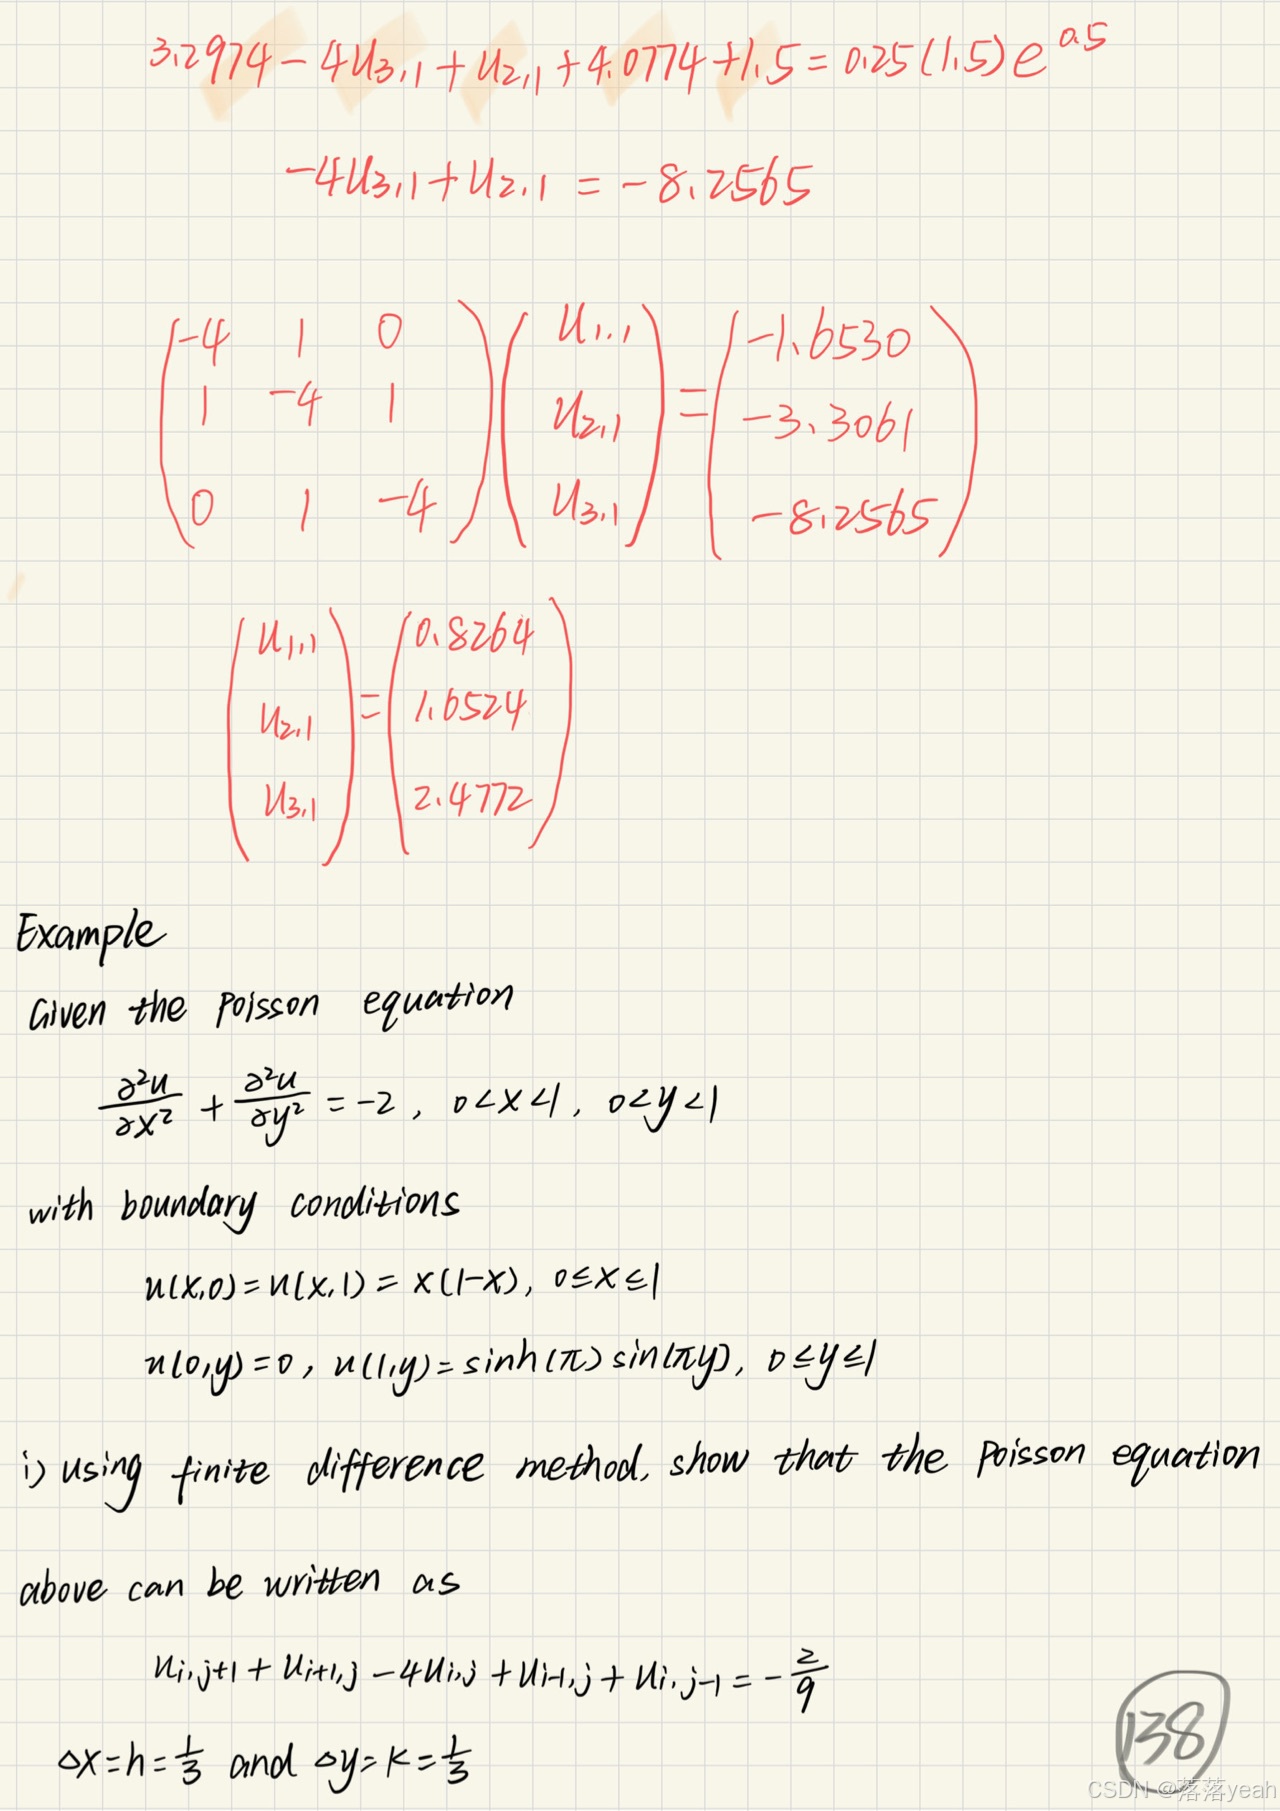 3.2974 - 4u₃,₁ + u₂,₁ + 4.0774 + 1.5 = 0.25(1.5)e^0.5
-4u₃,₁ + u₂,₁ = -8.2565
(-4 1 0) (u₁,₁) = (-1.6530)
(1 -4 1) (u₂,₁) = (-3.3061)
(0 1 -4) (u₃,₁) = (-8.2565)
(u₁,₁) = (0.8264)
(u₂,₁) = (1.6524)
(u₃,₁) = (2.4772)
Example
Given the Poisson equation
∂²u/∂x² + ∂²u/∂y² = -2, 0<x<1, 0<y<1
with boundary conditions
u(x,0)=u(x,1)= x(1-x), 0≤x≤1
u(0,y)=0, u(1,y)= sinh(π) sin(πy), 0≤y≤1
i) using finite difference method, show that the Poisson equation
above can be written as
uᵢ,ⱼ₊₁ + uᵢ₊₁,ⱼ - 4uᵢ,ⱼ + uᵢ₋₁,ⱼ + uᵢ,ⱼ₋₁ = -2/9
Δx=h=1/3 and Δy=k=1/3
138
CSDN @落落yeah